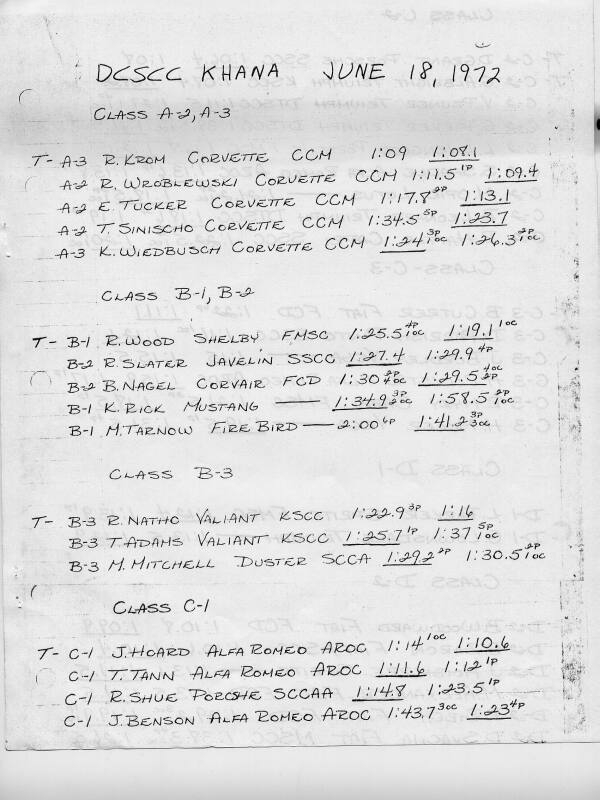 DCSCC KHANA JUNE 18, 1972
CLASS A-2, A-3
T- A-3 R. KROM CORVETTE CCM 1:09 1:08.1
A-2 R. WROBLEWSKI CORVETTE CCM 1:11.5 1P 1:09.4
A-2 E. TUCKER CORVETTE CCM 1:17.8 2P 1:13.1
A-2 T. SINISCHO CORVETTE CCM 1:34.5 5P 1:23.7
A-3 K. WIEDBUSCH CORVETTE CCM 1:24 3P 1OC 1:26.3 2P 1OC
CLASS B-1, B-2
T- B-1 R. WOOD SHELBY FMSC 1:25.5 4P 1OC 1:19.1 1OC
B-2 R. SLATER JAVELIN SSCC 1:27.4 1:29.9 4P
B-2 B. NAGEL CORVAIR FCD 1:30 2P 4OC 1:29.5 4OC 2P
B-1 K. RICK MUSTANG — 1:34.9 3P 2OC 1:58.5 2P 1OC
B-1 M. TARNOW FIRE BIRD — 2:00 6P 1:41.2 3P 3OC
CLASS B-3
T- B-3 R. NATHO VALIANT KSCC 1:22.9 3P 1:16
B-3 T. ADAMS VALIANT KSCC 1:25.7 1P 1:37 5P 1OC
B-3 M. MITCHELL DUSTER SCCA 1:29.2 2P 1:30.5 2P 1OC
CLASS C-1
T- C-1 J. HOARD ALFA ROMEO AROC 1:14 1OC 1:10.6
C-1 T. TANN ALFA ROMEO AROC 1:11.6 1:12 1P
C-1 R. SHUE PORCSHE SCCAA 1:14.8 1:23.5 1P
C-1 J. BENSON ALFA ROMEO AROC 1:43.7 3OC 1:23 4P